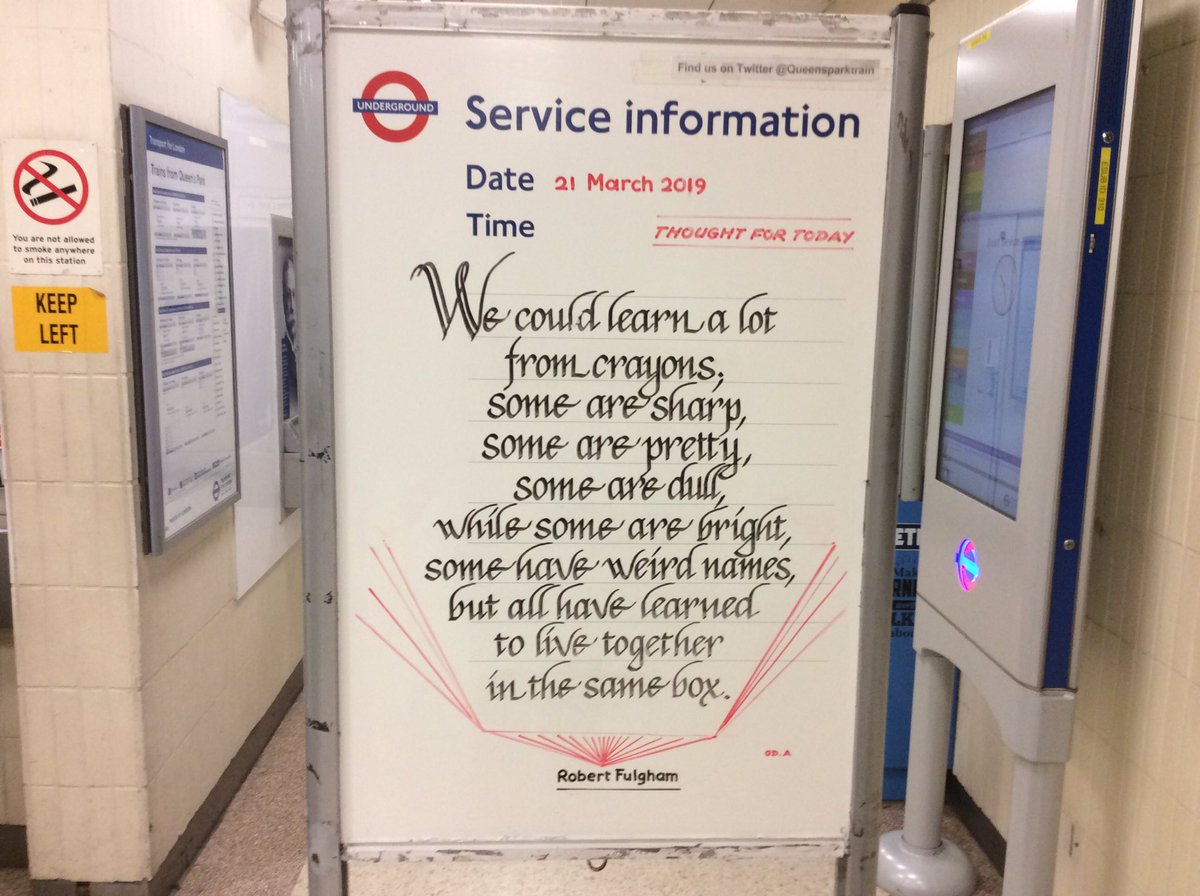 Find us on Twitter @Queensparktrain
UNDERGROUND
Service information
Date 21 March 2019
Time
THOUGHT FOR TODAY
We could learn a lot
from crayons;
some are sharp,
some are pretty,
some are dull,
while some are bright,
some have weird names,
but all have learned
to live together
in the same box.
OD.A
Robert Fulgham
You are not allowed
to smoke anywhere
on this station
KEEP
LEFT
Transport for London
Trains from Queen's Park